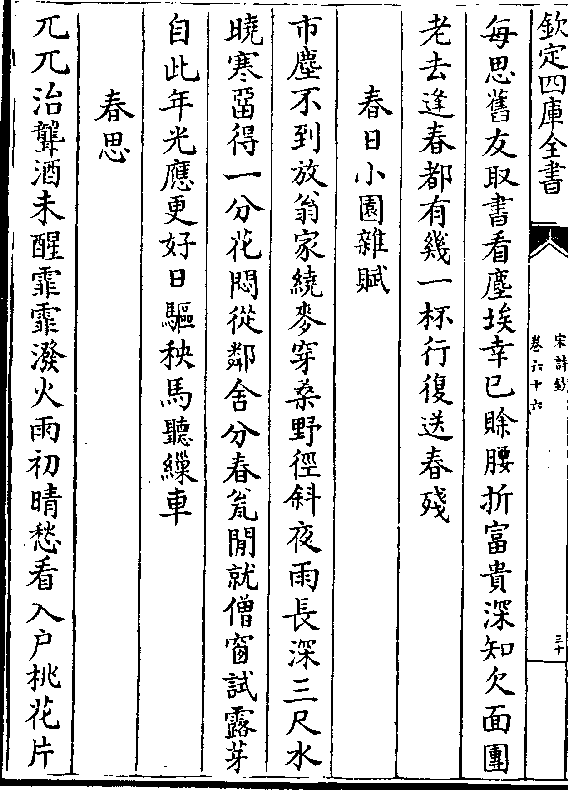 欽定四庫全書
宋詩鈔
卷六十六
三十
每思舊友取書看塵埃幸已賖腰折富貴深知欠面團
老去逢春都有幾一杯行復送春殘
春日小園雜賦
市塵不到放翁家繞麥穿桑野徑斜夜雨長深三尺水
曉寒畱得一分花悶從鄰舍分春瓮閒就僧窗試露芽
自此年光應更好日驅秧馬聽繅車
春思
兀兀治聾酒未醒霏霏潑火雨初晴愁看入戶桃花片